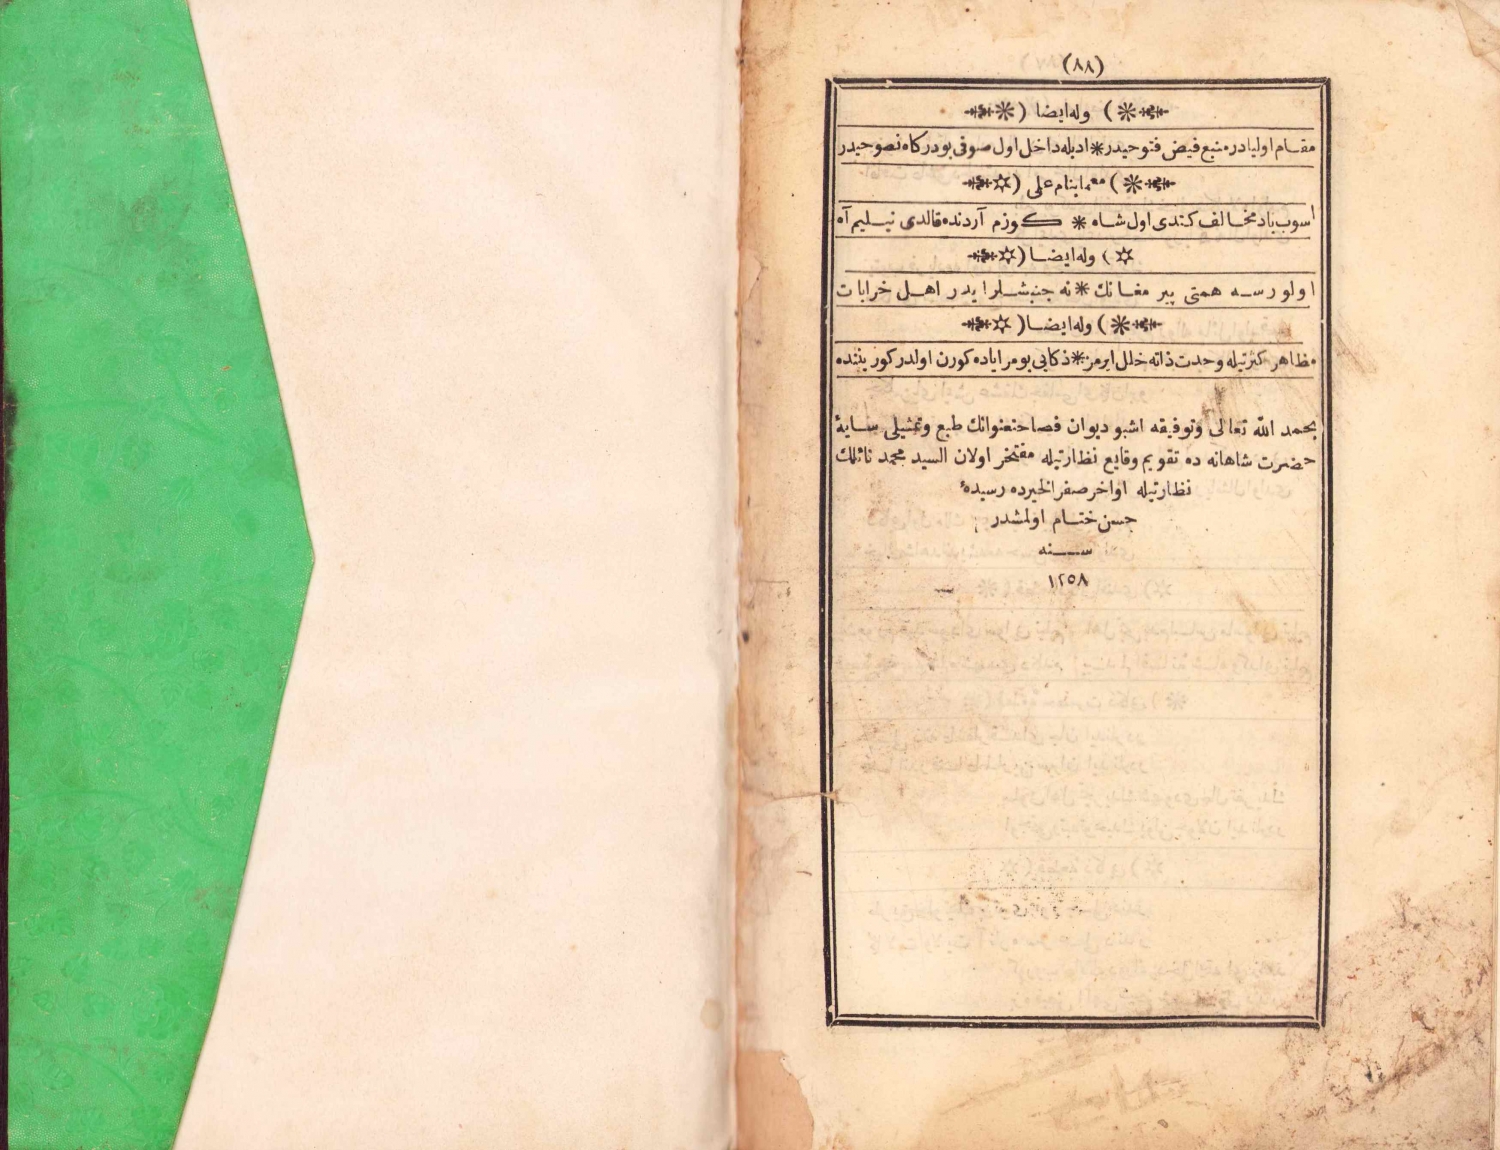 (٨٨)
وله ايضا
مقام اوليادر منبع فيض فتوحيدر * ادبله داخل اول صوفى بودركاه نصوحيدر
معما بنام على
اسوب باد مخالف كتدى اول شاه * كوزم آردنده قالدى نيليم آه
وله ايضا
اولورسه همتى پير مغانك * نه جنبشلر ايدر اهل خرابات
وله ايضا
مظاهر كثرتيله وحدت ذاته خلل ايرمز * ذكايى بو مراياده كورن اولدر كورينَده
بحمد الله تعالى وتوفيقه اشبو ديوان فصاحتعنوانك طبع وتمثيلى سايۀ
حضرت شاهانه ده تقويم وقايع نظارتيله مفتخر اولان السيد محمد نائلك
نظارتيله اواخر صفر الخيرده رسيدۀ
حسن ختام اولمشدر
سنه
١٢٥٨